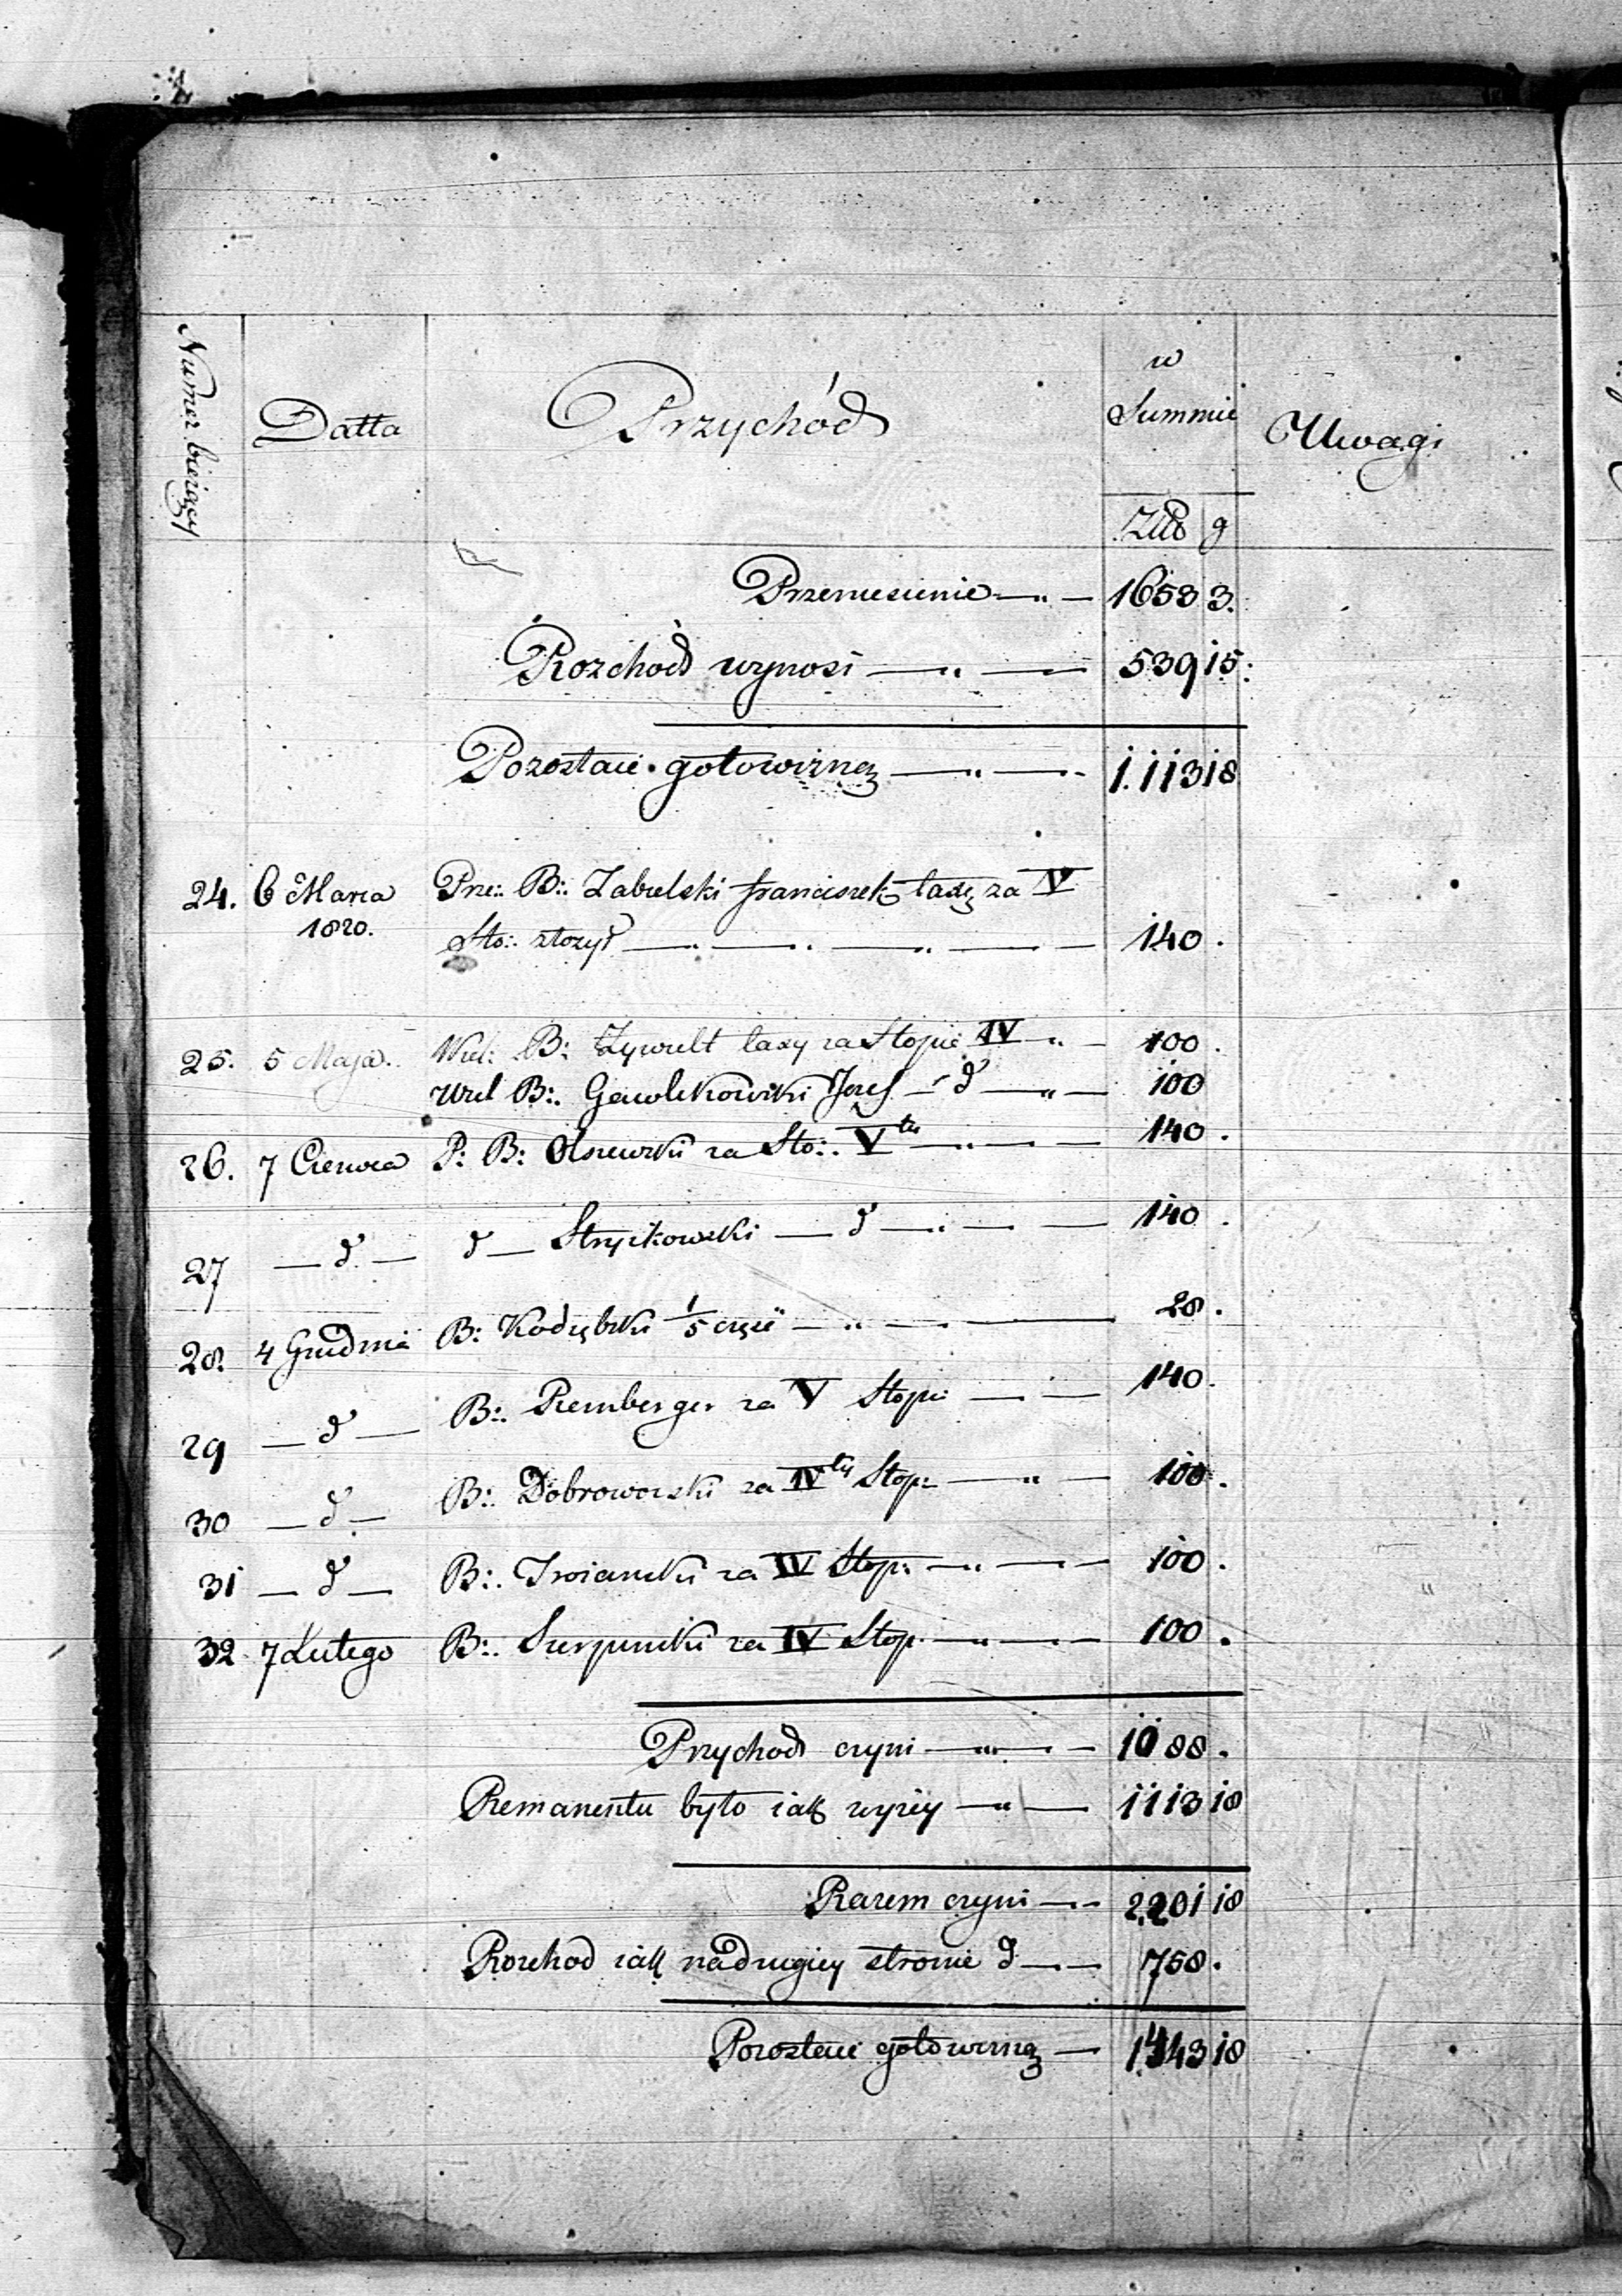 Numer bieżący
Datta
Przychód
w
Summie
Uwagi
Złłp g
Przeniesienie 1653 3.
Rozchod wynosi 539 15.
Pozostaie gotowizną 1.113 18
24. 6 Marca Prze:. B:. Zabielski franciszek taxę za V
1820. Sto:. złożył 140.
25. 5 Maja. Wiel: B: Żywult taxy za Stopie IV 100.
Wiel B:. Gawlikowski Jozef d 100
26. 7 Czerwca P: B: Olszewski za Sto:. V ty 140.
27 d d Stryikowski d 140.
28. 4 Grudnia B: Kodębski 1/5 częsć 28.
29 d B:. Remberger za V Stopń 140.
30 d B:. Dobrowolski za IV ty Stop: 100.
31 d B:. Troianski za IV Stop: 100.
32 7 Lutego B:. Sierpinski za IV Stop. 100.
Przychod czyni 1088.
Remanentu było iak wyżey 1113 18
Razem czyni 2201 18
Rozchod iak na drugiey stronie d 758.
Pozostaie gotowizną 1443 18